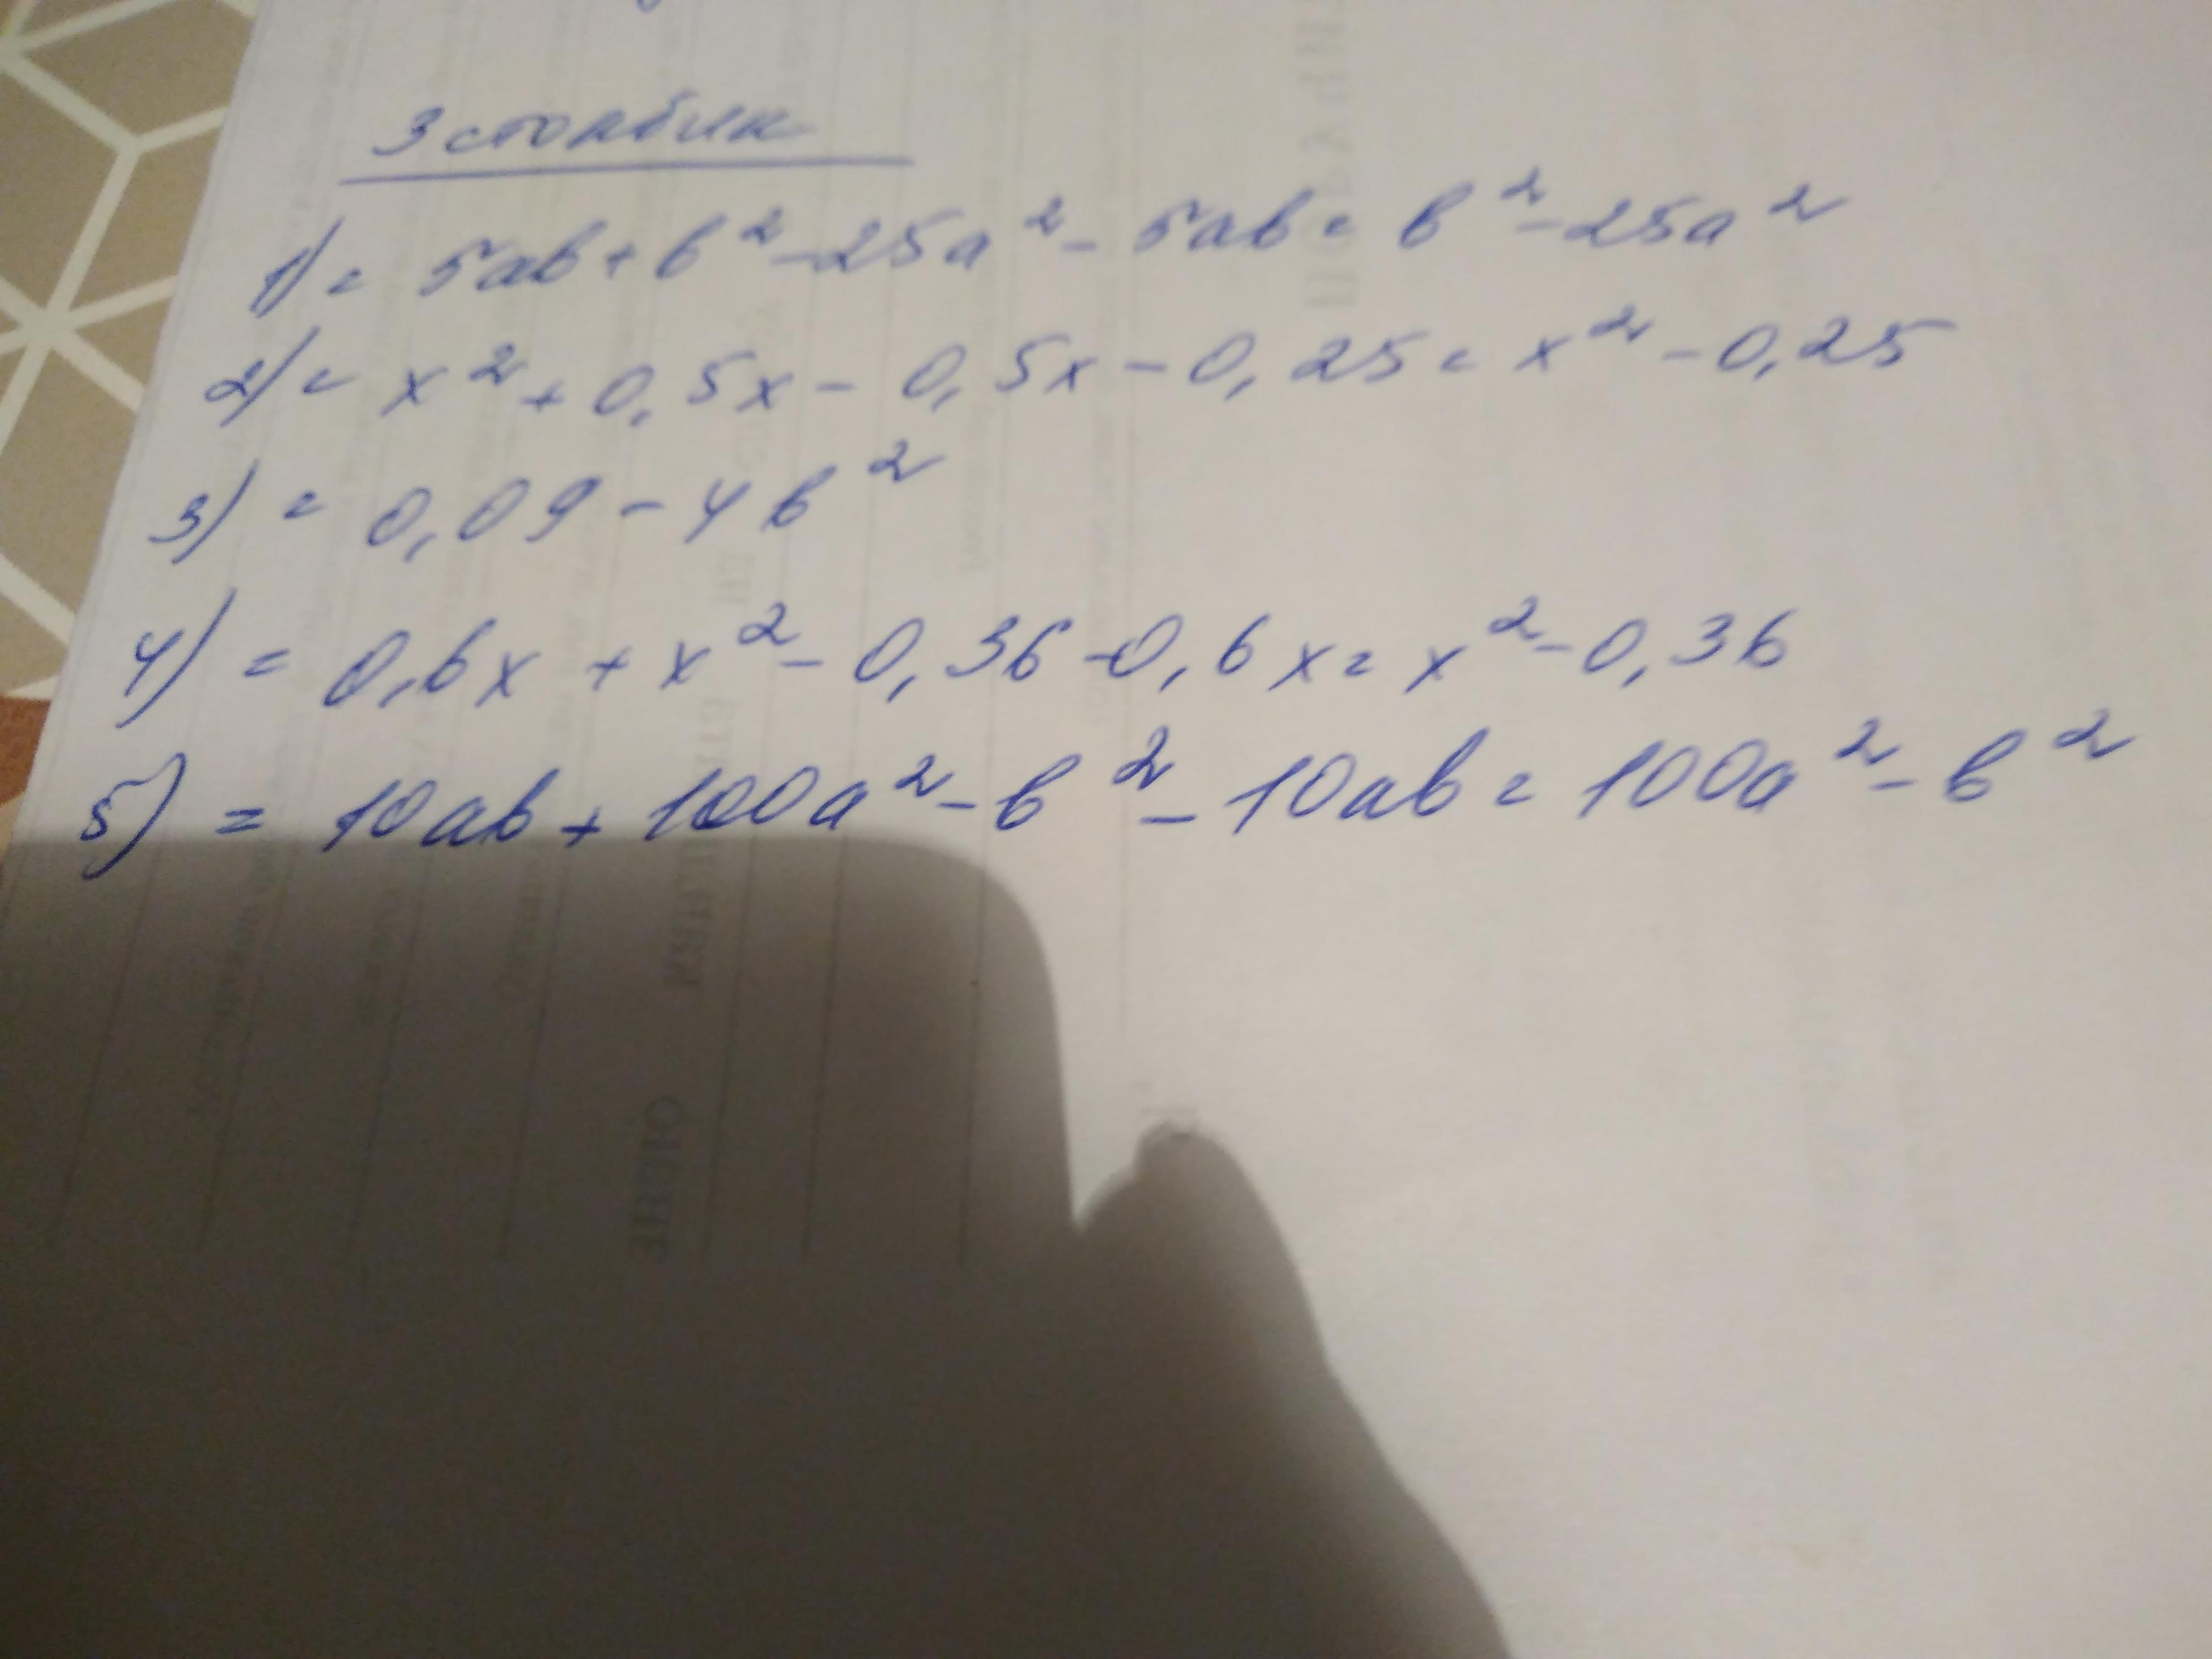 3 столбик
1) = 5ab + b² - 25a² - 5ab = b² - 25a²
2) = x² + 0,5x - 0,5x - 0,25 = x² - 0,25
3) = 0,09 - 4b²
4) = 0,6x + x² - 0,36 - 0,6x = x² - 0,36
5) = 10ab + 100a² - b² - 10ab = 100a² - b²